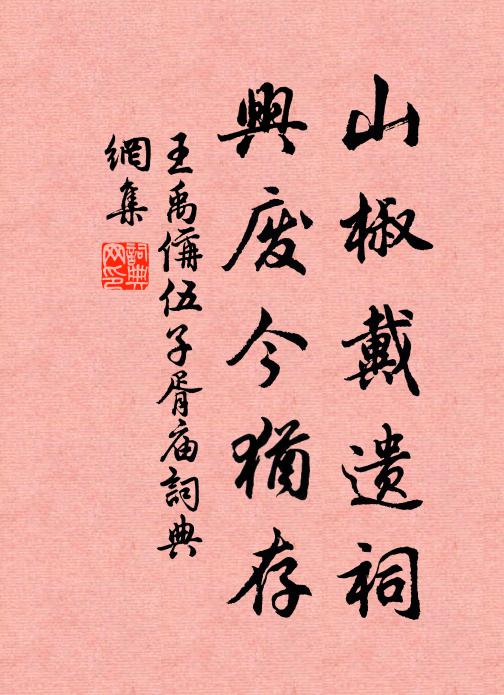 山椒戴遗祠
興废今猶存
王禹偁伍子胥庙詞典
網集
詞典
网印